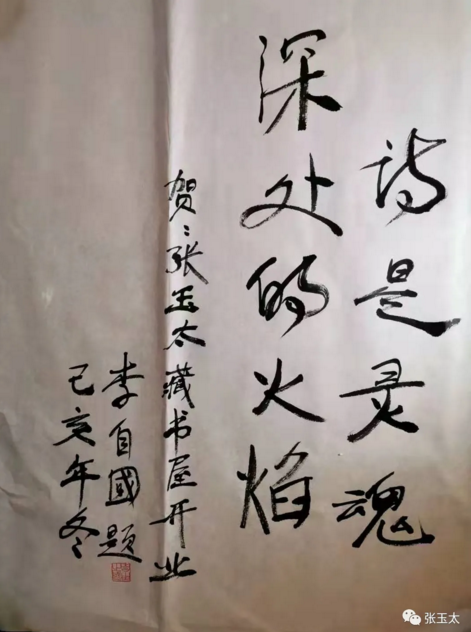 诗是灵魂
深处的火焰
贺:张玉太藏书屋开业
李自國题
己亥年冬
张玉太